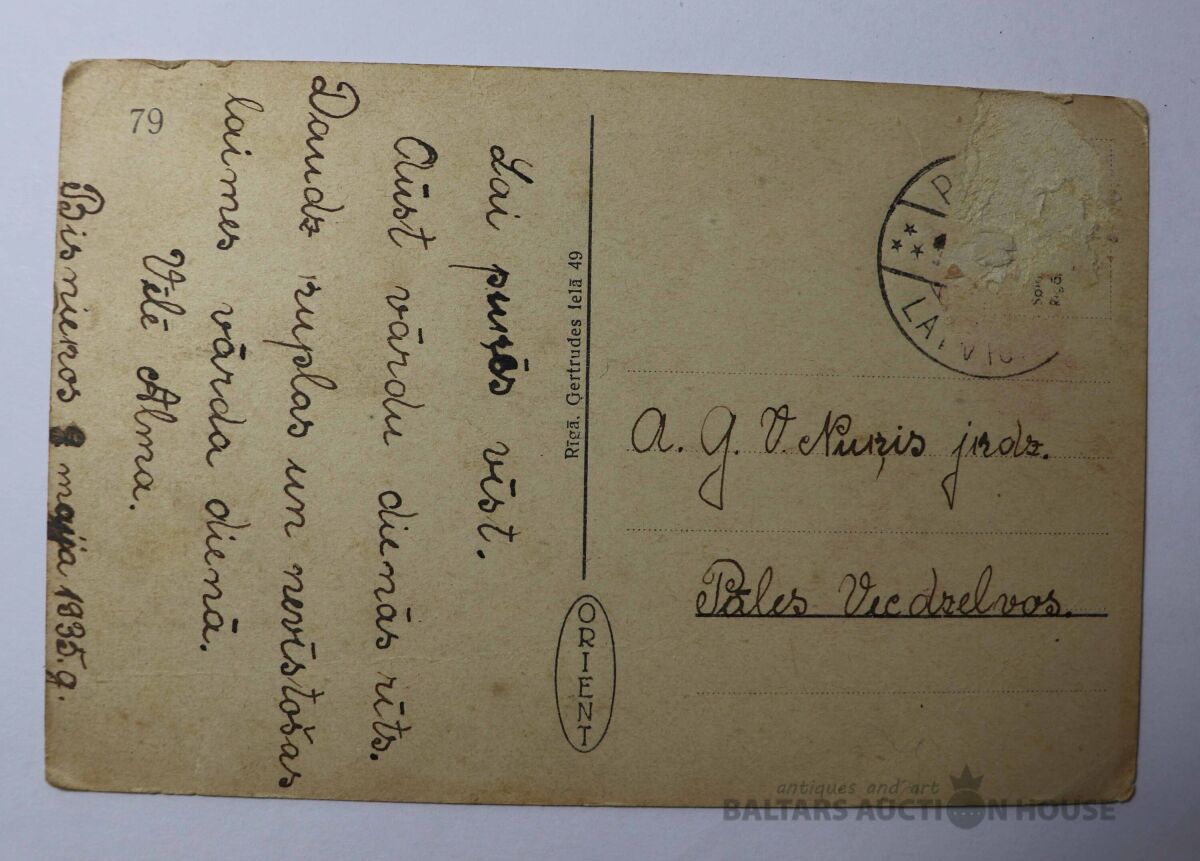 79
Lai puķēs vīst.
Aūst vārdu dienās rīts.
Daudz ruplas un nevīstošas
laimes vārda dienā.
Vēlē Alma.
Bisniekos maija 1935.g.
Rīgā, Ģertrudes ielā 49
ORIENT
LATVI
A. G. V. Nuķis jrdz.
Pāles Vecdzelvos.
antiques and art
BALTARS AUCTION HOUSE